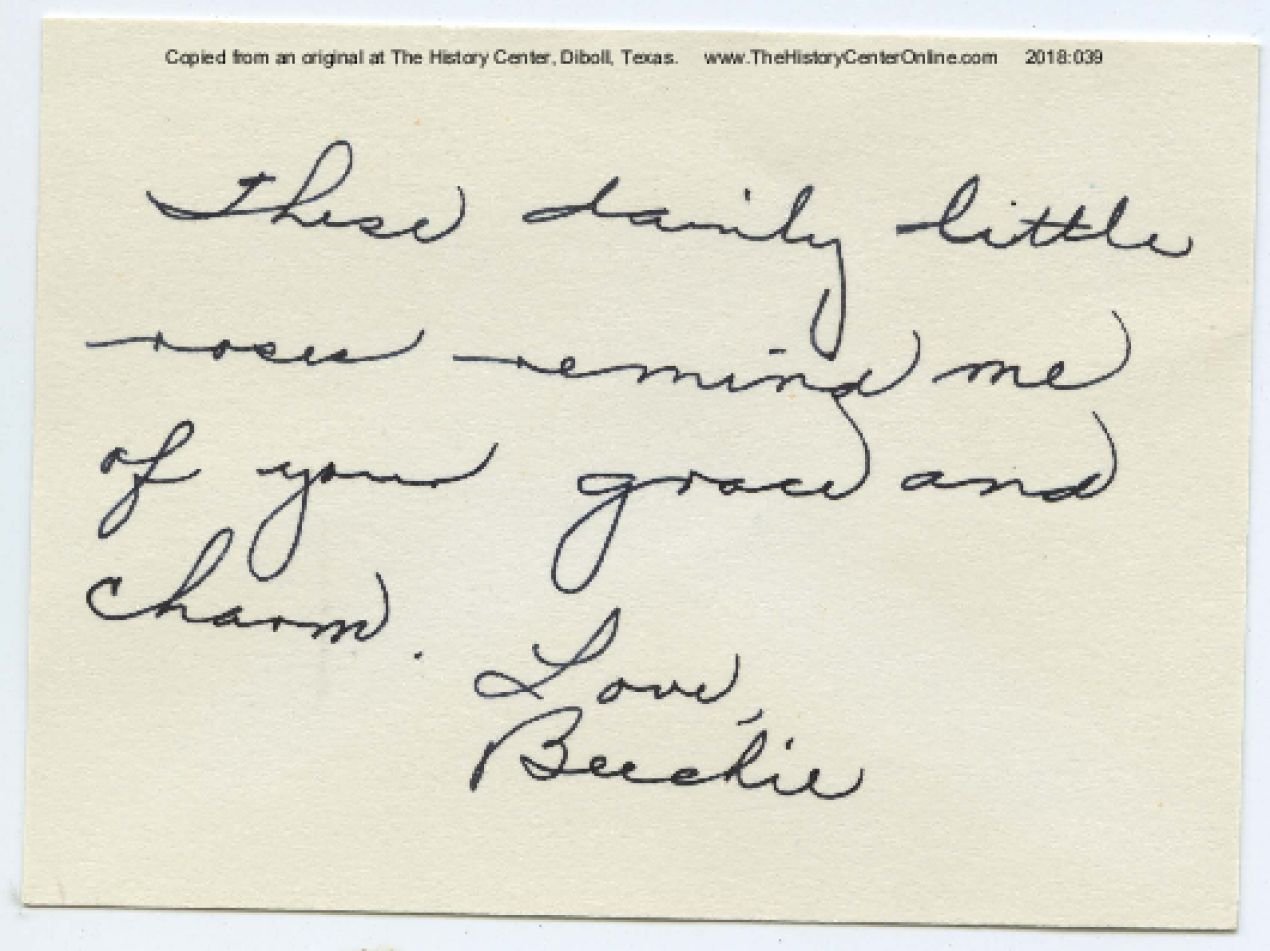 Copied from an original at The History Center, Diboll, Texas. www.TheHistoryCenterOnline.com 2018:039
These dainty little
roses remind me
of your grace and
charm.
Love,
Beechie